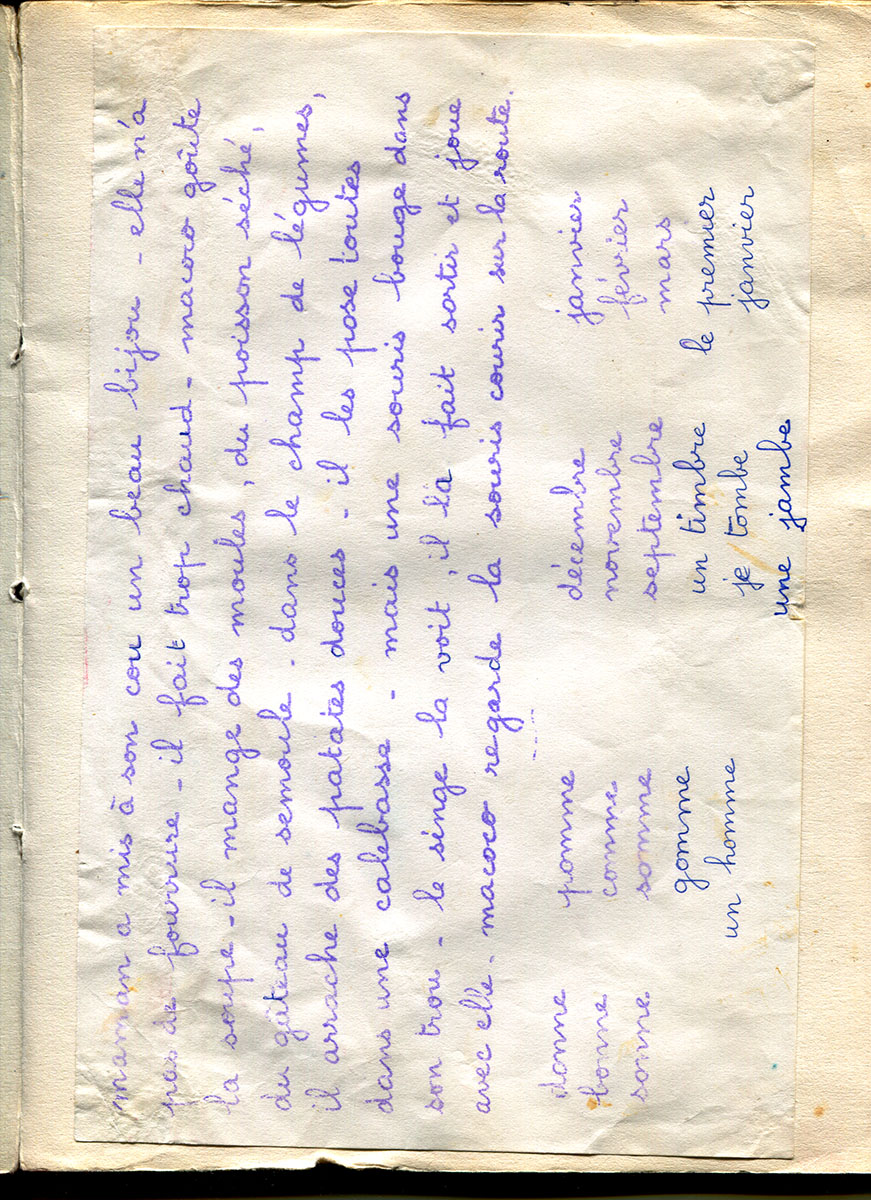 maman a mis à son cou un beau bijou - elle n'a
pas de fourrure - il fait trop chaud - macoco goûte
la soupe - il mange des moules, du poisson séché,
du gâteau de semoule - dans le champ de légumes,
il arrache des patates douces - il les pose toutes
dans une calebasse - mais une souris bouge dans
son trou - le singe la voit, il la fait sortir et joue
avec elle - macoco regarde la souris courir sur la route.
donne pomme décembre janvier
bonne comme novembre février
sonne somme septembre mars
gomme un timbre le premier
un homme je tombe janvier
une jambe